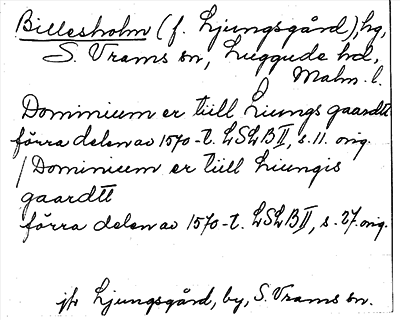 Billesholm (f. Ljungsgård), hg,
S. Vrams sn, Luggude hd,
Malm. l.
Dominium er tiill Liungs gaardtt
förra delen av 1570-t. LSLB II, s. 11. orig.
/Dominium er tiill Liungis
gaardtt
förra delen av 1570-t. LSLB II, s. 27. orig.
jfr Ljungsgård, by, S. Vrams sn.